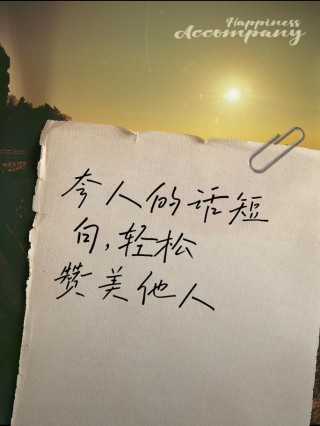 Happiness
Accompany
夸人的话短
句,轻松
赞美他人